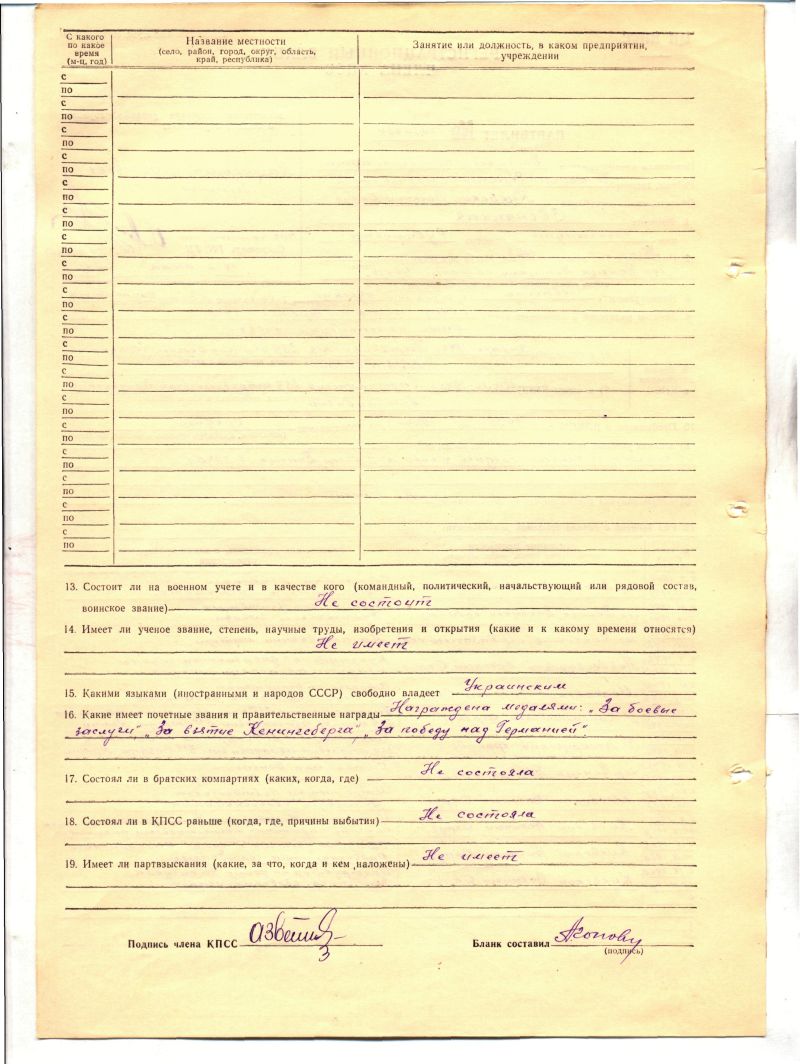 С какого
по какое
время
(м-ц, год)
Название местности
(село, район, город, округ, область,
край, республика)
Занятие или должность, в каком предприятии,
учреждении
с
по
с
по
с
по
с
по
с
по
с
по
с
по
с
по
с
по
с
по
с
по
с
по
с
по
с
по
с
по
с
по
с
по
с
по
13. Состоит ли на военном учете и в качестве кого (командный, политический, начальствующий или рядовой состав,
воинское звание) Не состоит
14. Имеет ли ученое звание, степень, научные труды, изобретения и открытия (какие и к какому времени относятся)
Не имеет
15. Какими языками (иностранными и народов СССР) свободно владеет Украинским
16. Какие имеет почетные звания и правительственные награды Награждена медалями: „За боевые
заслуги", „За взятие Кенингсберга", „За победу над Германией".
17. Состоял ли в братских компартиях (каких, когда, где) Не состояла
18. Состоял ли в КПСС раньше (когда, где, причины выбытия) Не состояла
19. Имеет ли партвзыскания (какие, за что, когда и кем наложены) Не имеет
Подпись члена КПСС
Бланк составил
(подпись)